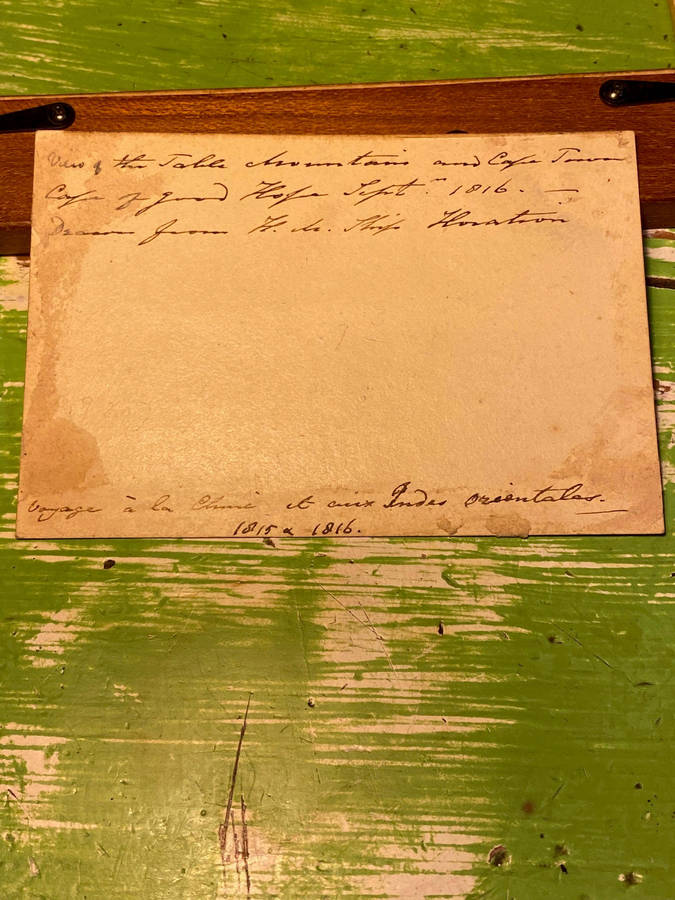 View of the Table Mountain and Cape Town
Cape of good Hope Sept.r 1816. —
Drawn from H. M. Ship Horatio
Voyage à la Chine et aux Indes orientales.
1815 & 1816.